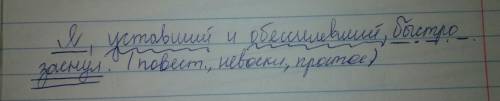 Я, уставший и обессилевший, быстро
заснул. (повест., невоскл, простое)